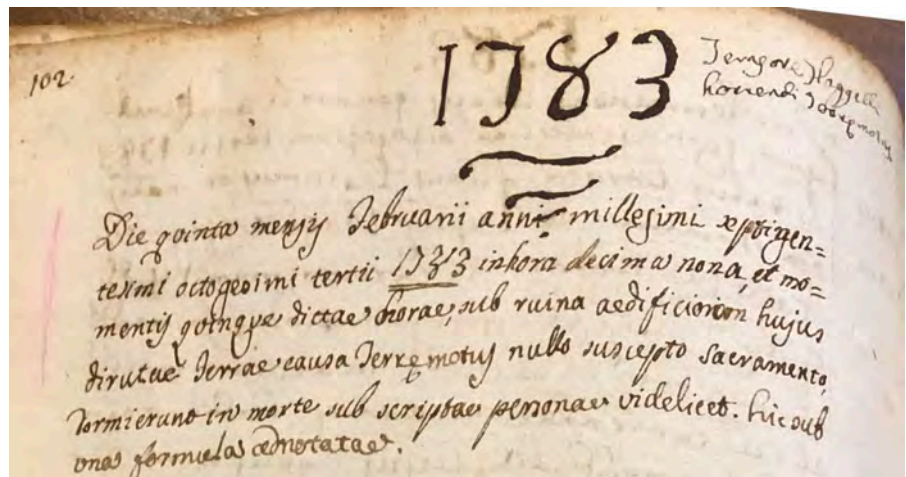 102.
1783
Tempore Flagelli
horrendi Terremotus
Die quinta mensis Februarii anni millesimi septingen=
tesimi octogesimi tertii 1783 in hora decima nona, et mo=
mentis quinque dictae horae, sub ruina aedificiorum hujus
dirutae Terrae causa Terremotus nullo suscepto Sacramento,
dormierunt in morte sub scriptae personae videlicet. hic sub
una formula adnotatae.